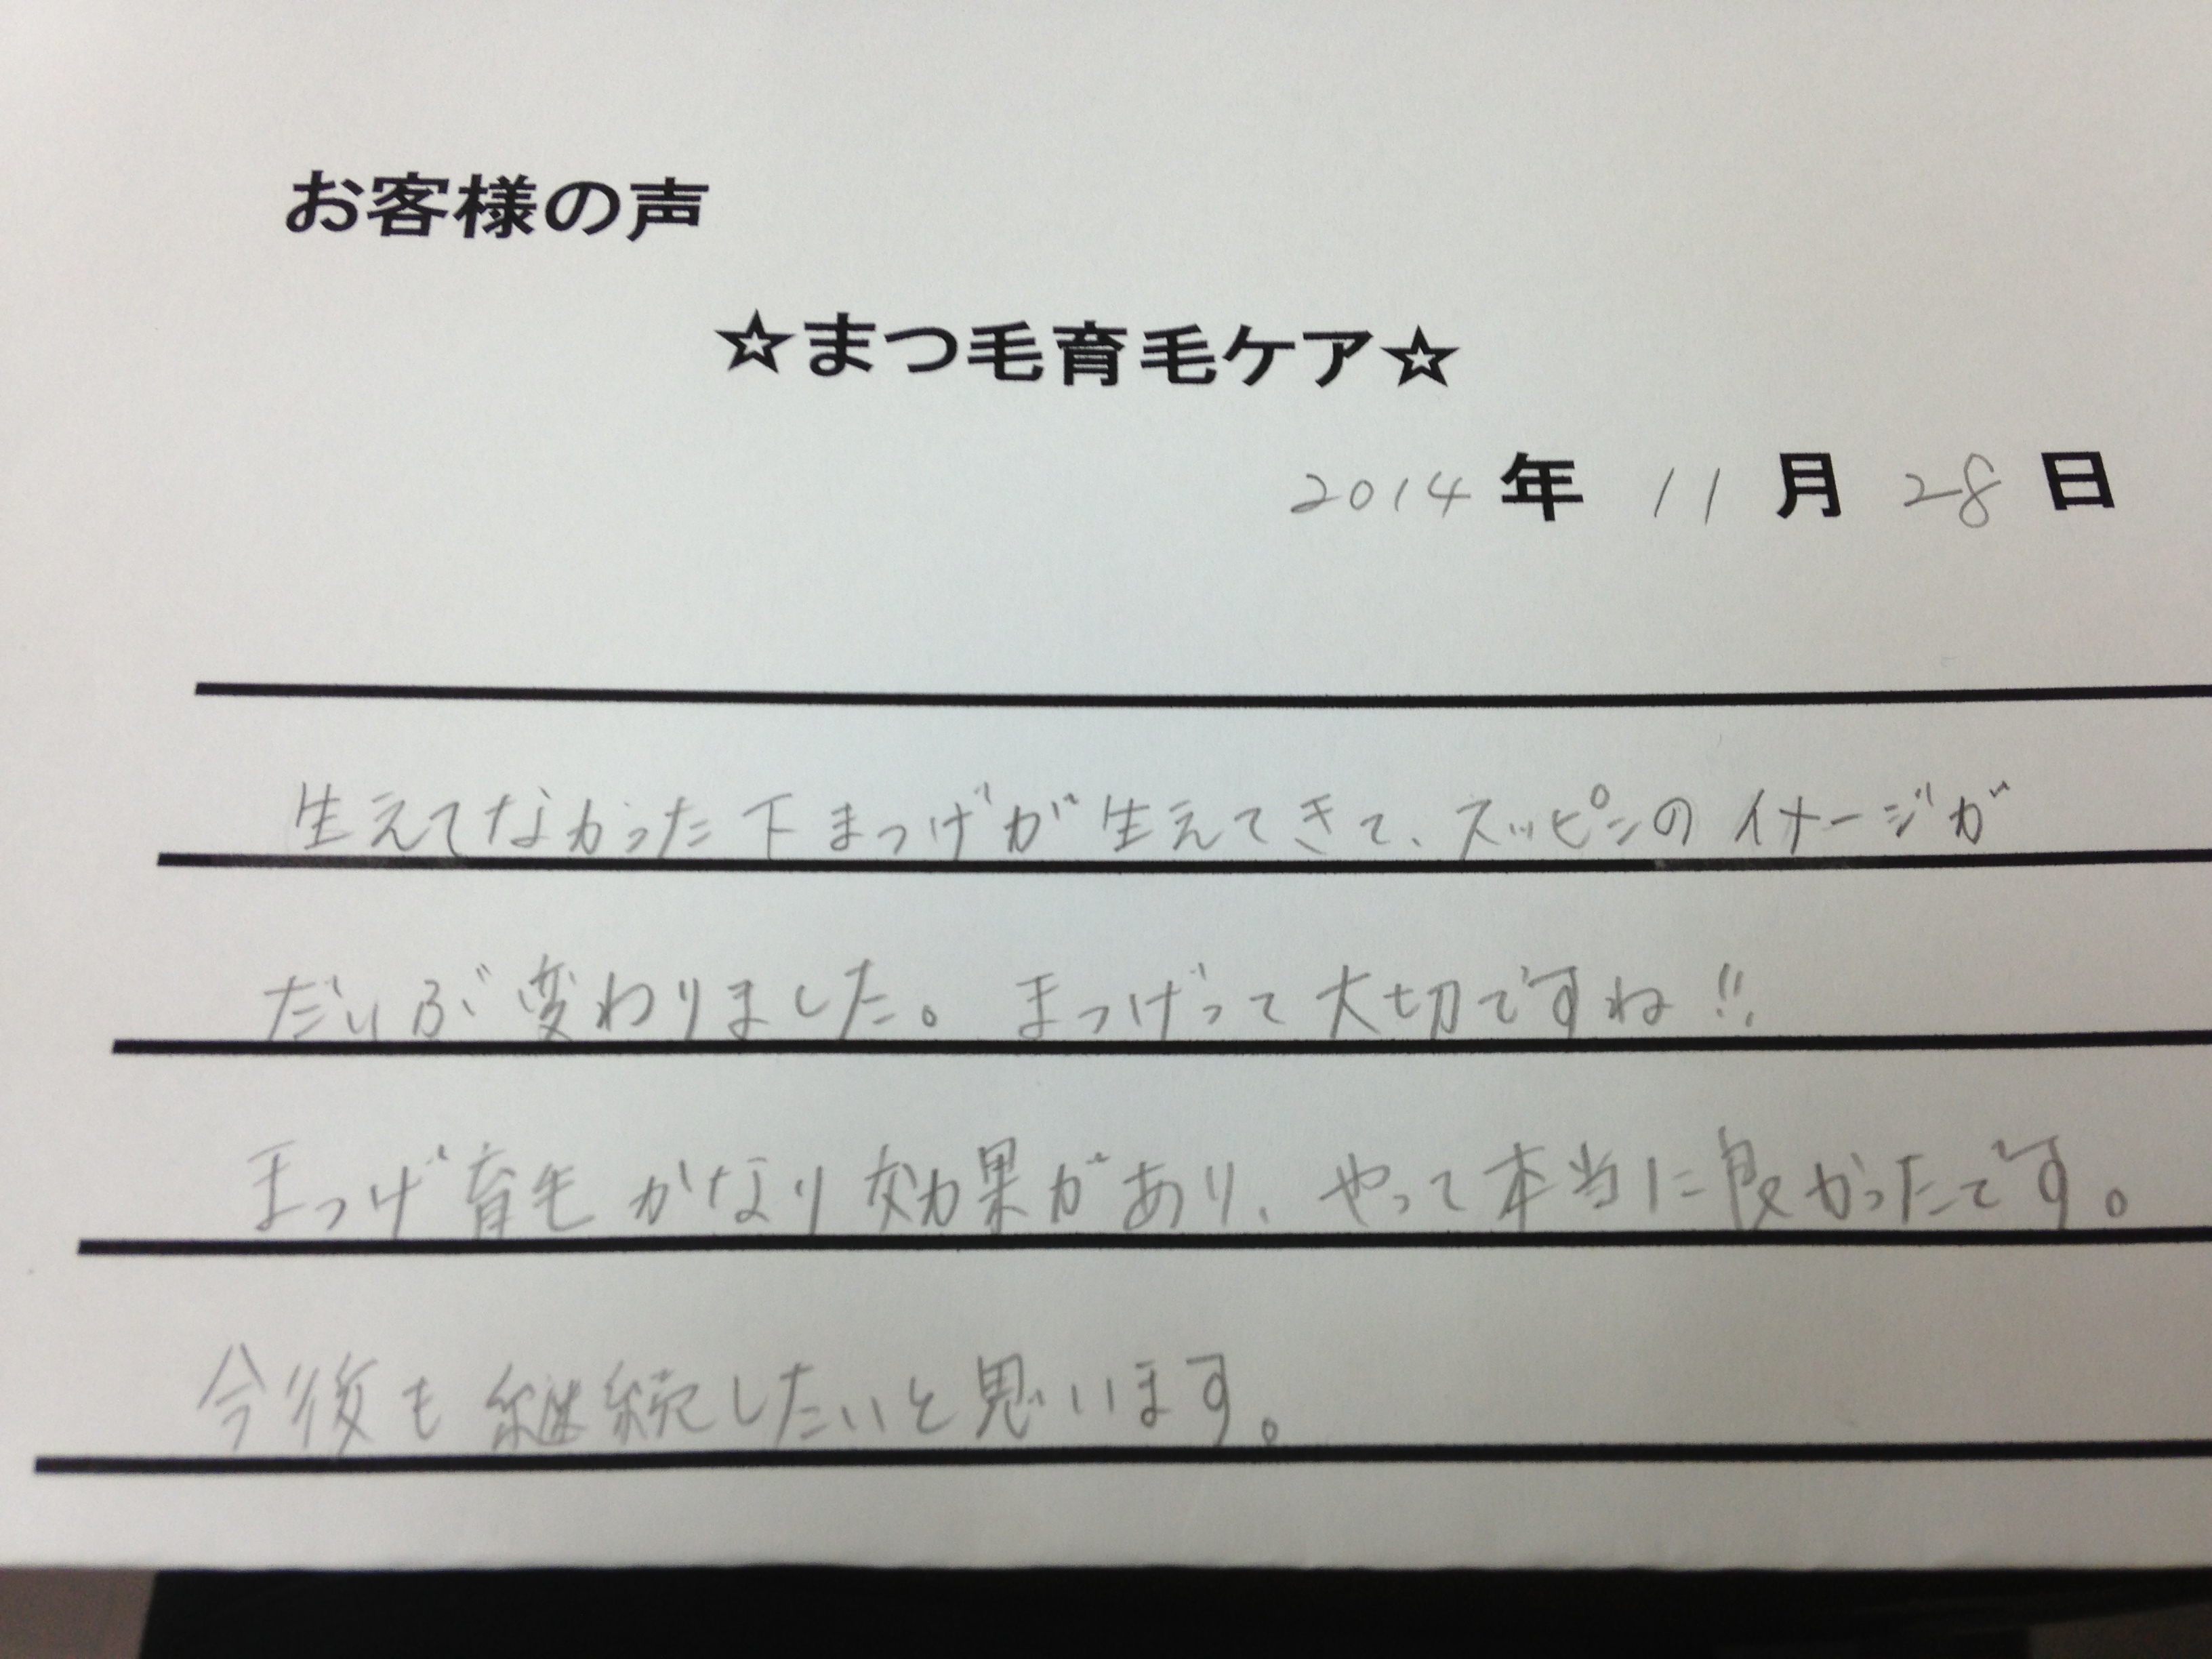 お客様の声
☆まつ毛育毛ケア☆
2014年 11月 28日
生えてなかった下まつげが生えてきて、スッピンのイメージが
だいぶ変わりました。まつげって大切ですね!!
まつげ育毛かなり効果があり、やって本当に良かったです。
今後も継続したいと思います。